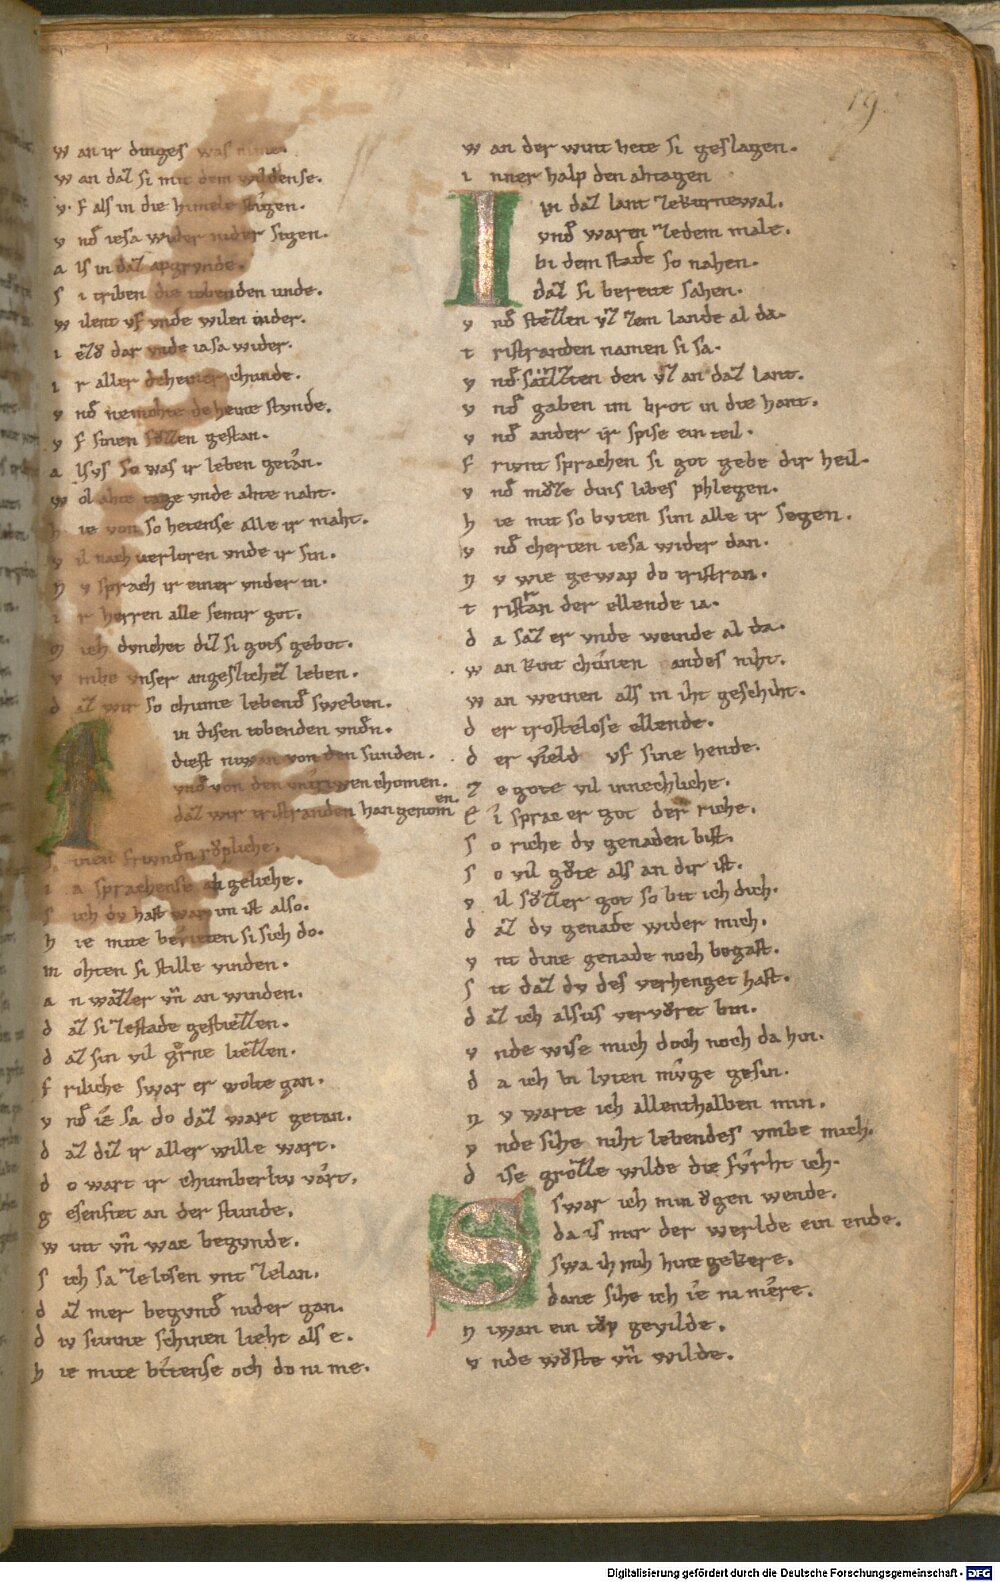 19
w an ir dinges was nime.
w an daz si mit dem wilden se.
v f als in die himele stigen.
v nd iesa wider nider sigen.
a ls in daz apgrunde.
s i triben die tobenden unde.
w ilent vf vnde wilen nider.
i ezo dar vnde iasa wider.
i r aller deheiner chunde.
v nd nemohte deheine stunde.
v f sinen fozzen gestan.
a lsus so was ir leben getan.
w ol ahte tage vnde ahte naht.
h ie von so heten se alle ir maht.
v il nach verloren vnde ir sin.
n v sprach ir einer vnder in.
i r herren alle semir got.
m ich dunchet diz si gots gebot.
v mbe vnser angeslichez leben.
d az wir so chume lebend sweben.
in disen tobenden vndn.
diest niwan von den sunden.
vnd von den untriwen chomen.
daz wir tristranden han genomen.
s inen friundn roupliche.
i a sprachen se al geliche.
s ich du hast war im ist also.
h ie mite berieten si sich do.
m ohten si stille vinden.
a n wazzer vn an winden.
d az si ze stade gestiezzen.
d az sin vil gerne liezzen.
f riliche swar er wolte gan.
v nd ie sa do daz wart getan.
d az diz ir aller wille wart.
d o wart ir chumberliv vart.
g esenftet an der stunde.
w int vn wac begunde.
s ich sa zelosen vnt zelan.
d az mer begund nider gan.
d iv sunne schinen lieht als e.
h ie mite biten se och do ni me.
w an der wint hete si geslagen.
i nner halp den ahtagen
in daz lant ze kurnewal.
vnd waren ze dem male.
bi dem stade so nahen.
daz si bereite sahen.
v nd stezzen vz zem lande al da.
t ristranden namen si sa.
v nd sazzten den vz an daz lant.
v nd gaben im brot in die hant.
v nd ander ir spise ein teil.
f riunt sprachen si got gebe dir heil.
v nd moze dins libes phlegen.
h ie mit so buten sim alle ir segen.
v nd cherten iesa wider dan.
n v wie gewap do tristran.
t ristran der ellende ia.
d a saz er vnde weinde al da.
w an kunt chunen andes niht.
w an weinen als in iht geschiht.
d er trostelose ellende.
d er vield vf sine hende.
z e gote vil innechliche.
e i sprac er got der riche.
s o riche du genaden bist.
s o vil goute als an dir ist.
v il sozzer got so bit ich dich.
d az du genade wider mich.
v nt dine genade noch begast.
s it daz du des verhenget hast.
d az ich alsus verforet bin.
v nde wise mich doch noch da hin.
d a ich bi lvten muge gesin.
n v warte ich allenthalben min.
v nde sihe niht lebendes vmbe mich.
d ise grozze wilde die furht ich.
swar ich min ougen wende.
da is mir der werlde ein ende.
swa ih mih hine gekere.
dane sihe ich ie ni mere.
n iwan ein toup gevilde.
v nde wouste vn wilde.
Digitalisierung gefördert durch die Deutsche Forschungsgemeinschaft - DFG